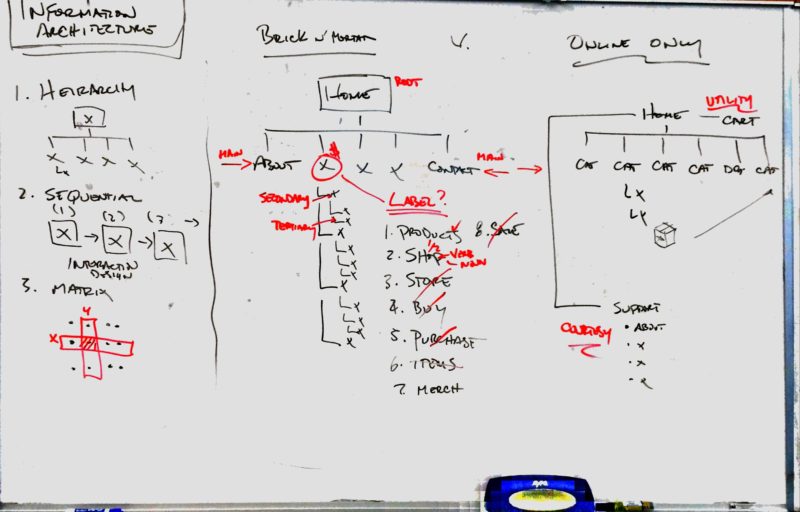 INFORMATION
ARCHITECTURE
1. HEIRARCHY
X
X X X X
X
2. SEQUENTIAL
(1) (2) (3
X → X → X →
INTERACTION
DESIGN
3. MATRIX
Y
X
BRICK N' MORTAR
V.
HOME
ROOT
MAIN → ABOUT X X X CONTACT MAIN
SECONDARY
TERTIARY
X
X
X
X
X
X
X
X
X
X
X
X
LABEL?
1. PRODUCTS
8. SALE
2. SHOP 1/2 - VERB
- NOUN
3. STORE
4. BUY
5. PURCHASE
6. ITEMS
7. MERCH
ONLINE ONLY
UTILITY
HOME — CART
CAT CAT CAT CAT CAT
X
X
SUPPORT
COURTESY
• ABOUT
• X
• X
• X